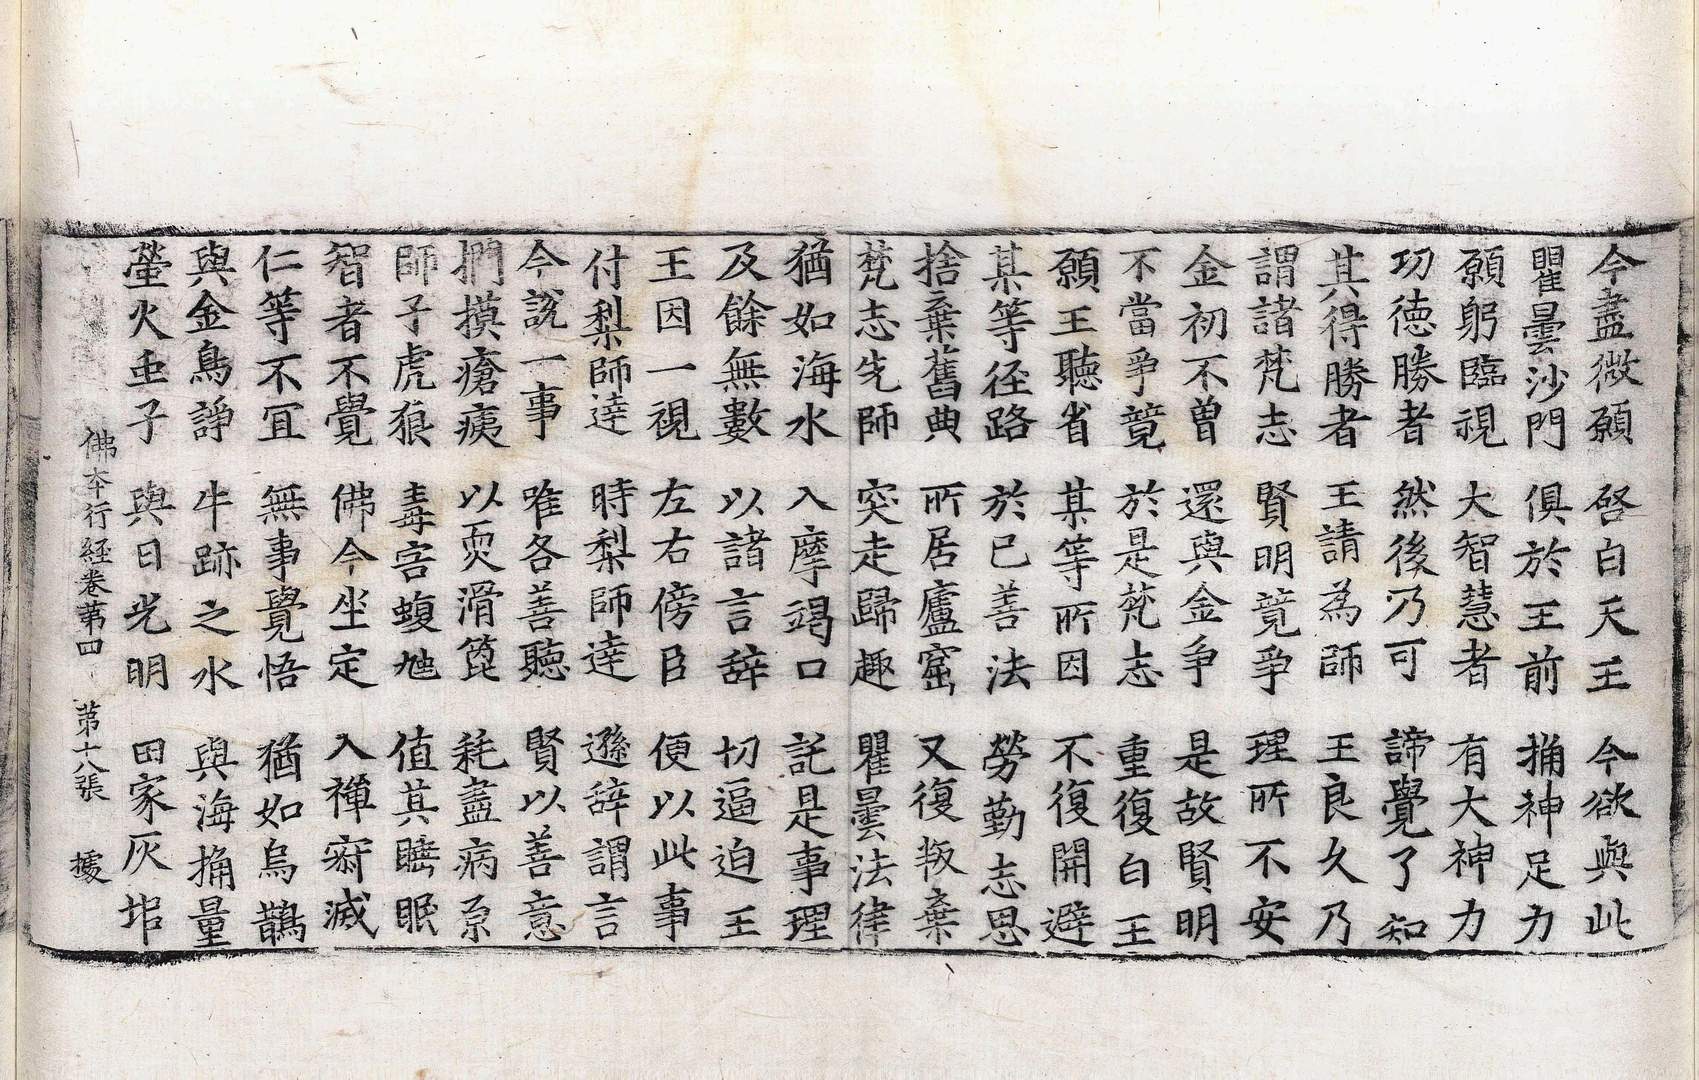 今盡微願 啓白天王 今欲與此
瞿曇沙門 俱於王前 捔神足力
願躬臨視 大智慧者 有大神力
功德勝者 然後乃可 諦覺了知
其得勝者 王請為師 王良久乃
謂諸梵志 賢明竟爭 理所不安
金初不曾 還與金爭 是故賢明
不當爭竟 於是梵志 重復白王
願王聽省 某等所因 不復開避
某等径路 於已善法 勞勤志思
捨棄舊典 所居廬窟 又復叛棄
梵志先師 突走歸趣 瞿曇法律
猶如海水 入摩竭口 託是事理
及餘無數 以諸言辞 切逼迫王
王因一視 左右傍臣 便以此事
付梨師達 時梨師達 遜辞謂言
今說一事 唯各善聽 賢以善意
捫摸瘡痍 以耎滑篦 耗盡病原
師子虎狼 毒害蝮虵 值其睡眠
智者不覺 佛今坐定 入禪寂滅
仁等不冝 無事覺悟 猶如烏鵲
與金鳥諍 牛跡之水 與海捔量
螢火虫子 與日光明 田家灰坩
佛本行経卷苐四 苐十八張 㩀